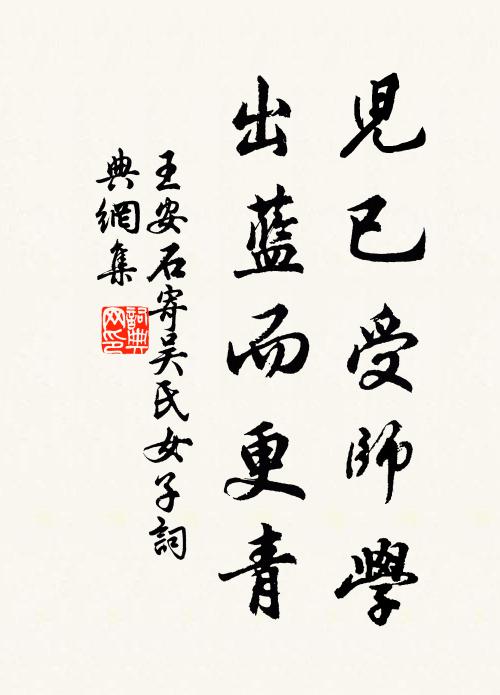 兒已受師學
出藍而更青
王安石寄吳氏女子詞
典網集
詞典
网印